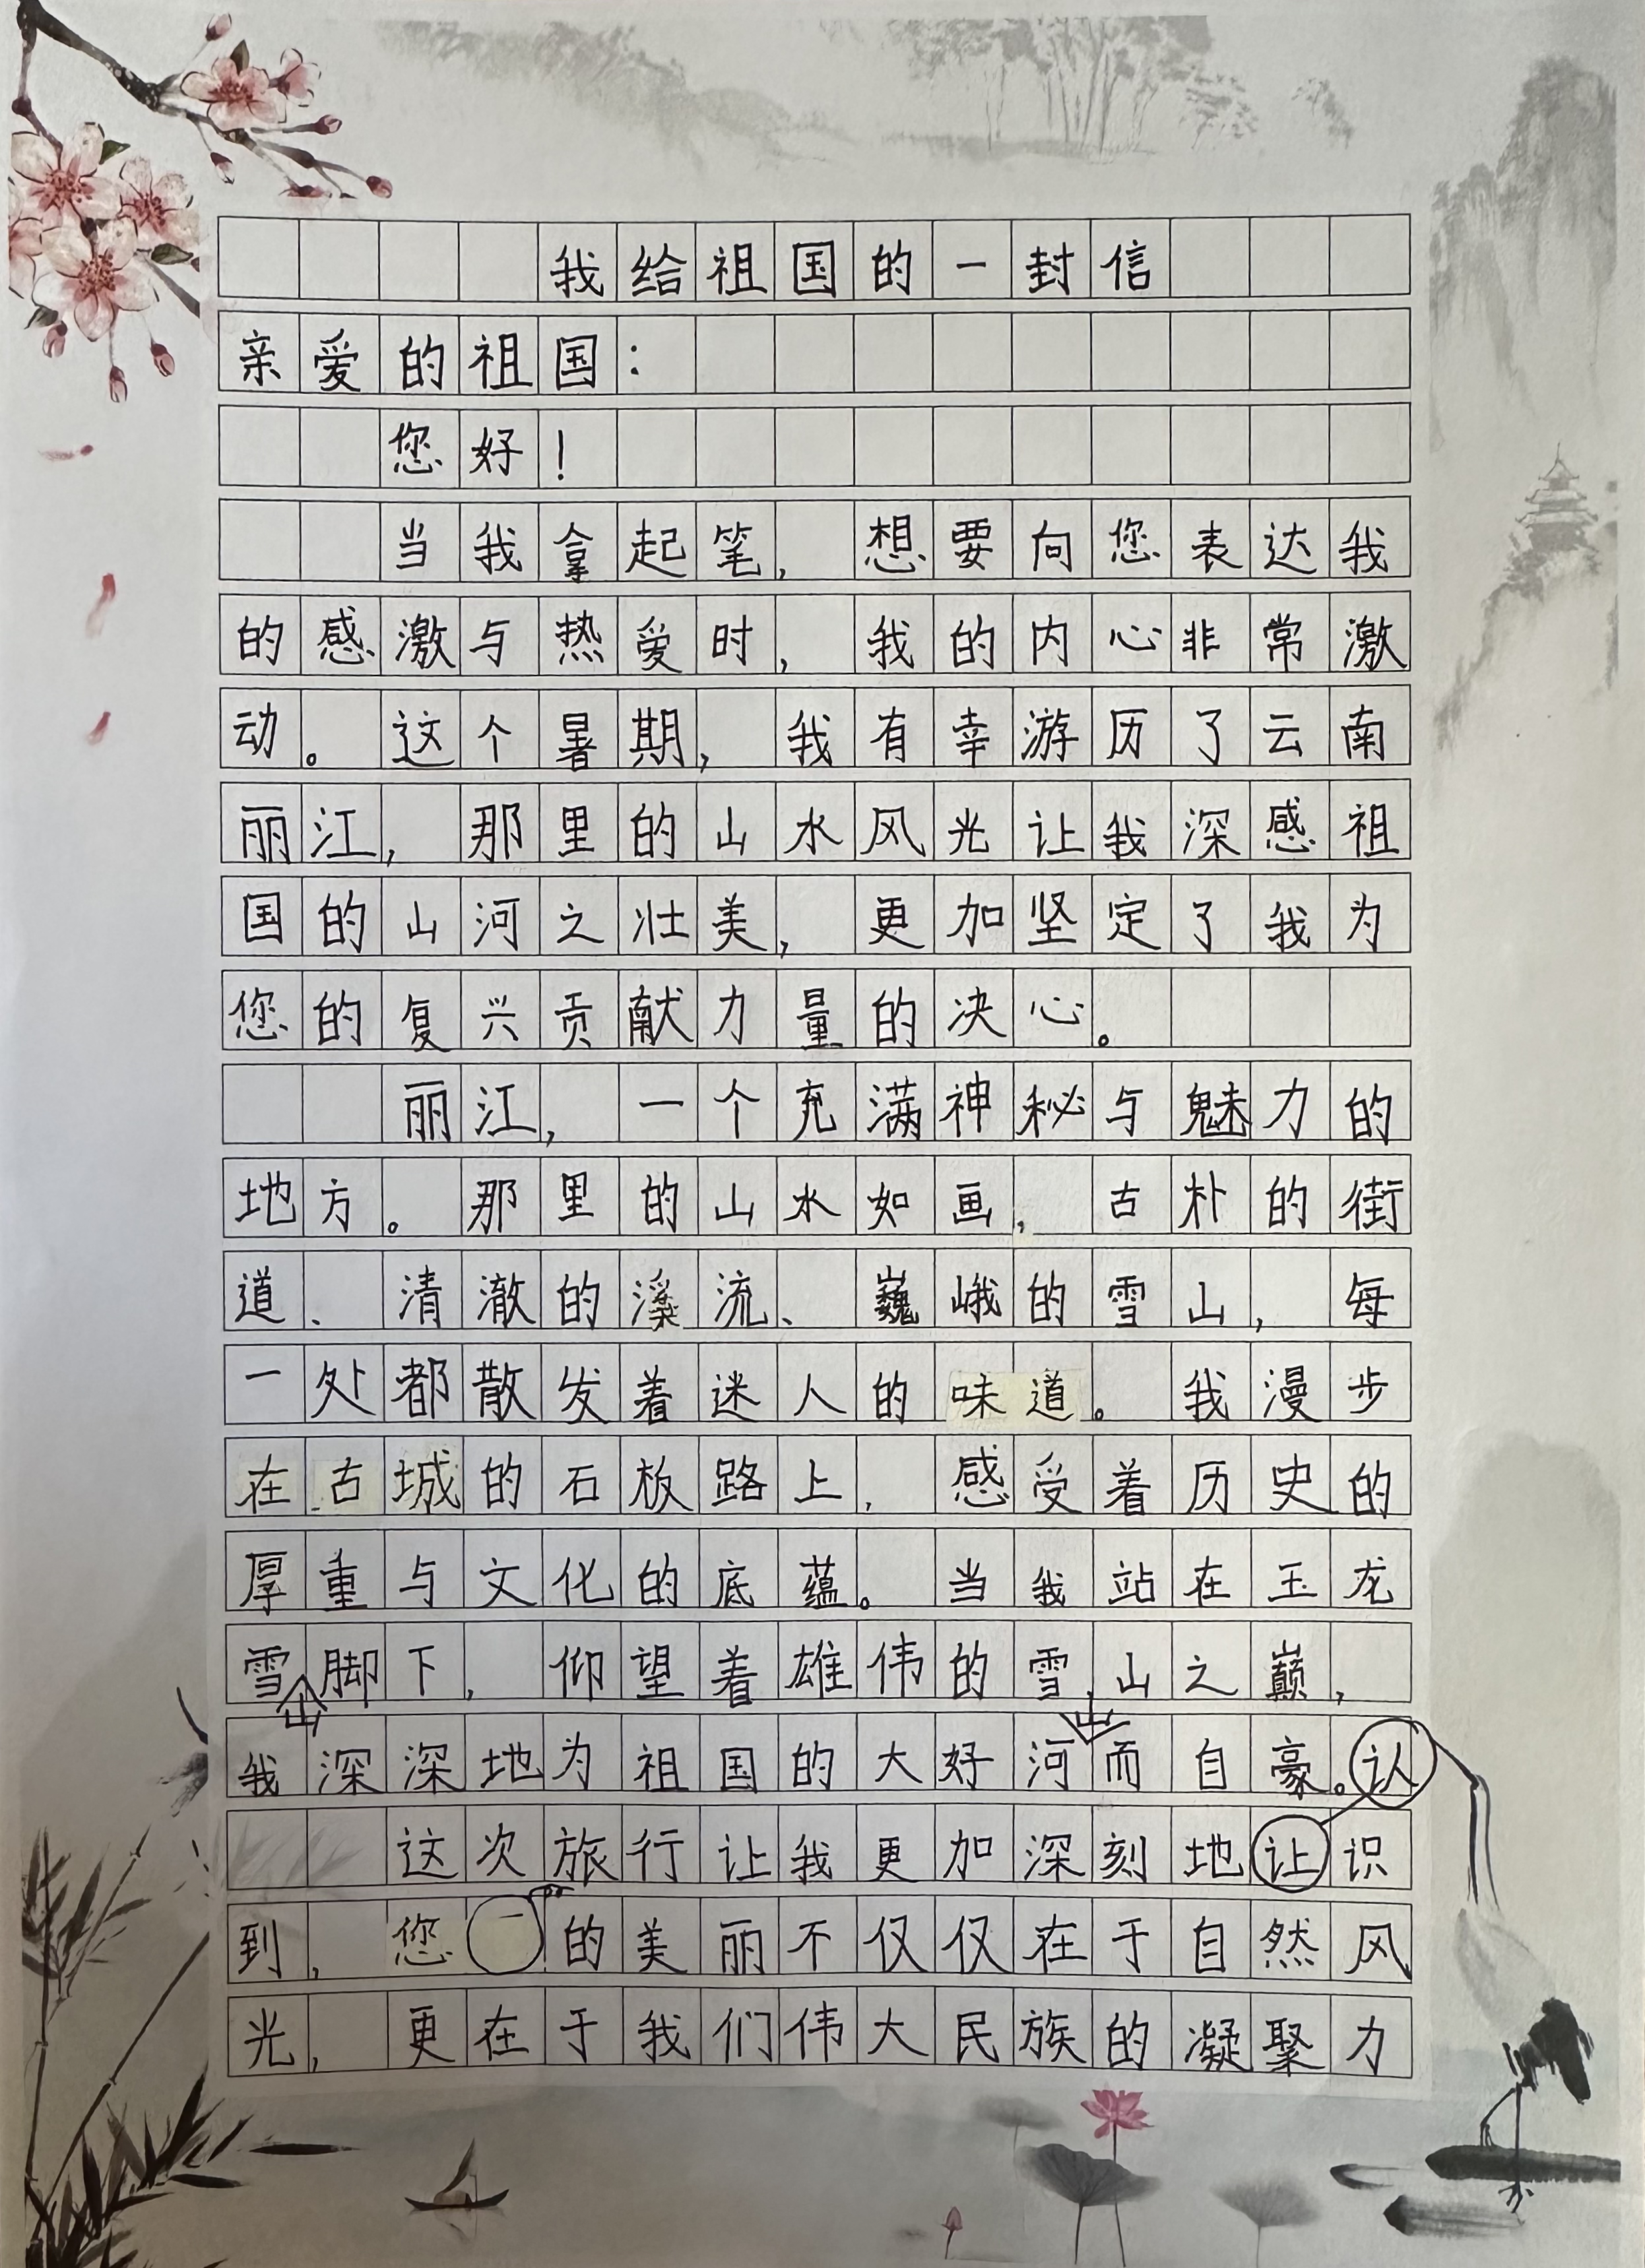 我给祖国的一封信
亲爱的祖国：
您好！
当我拿起笔，想要向您表达我
的感激与热爱时，我的内心非常激
动。这个暑期，我有幸游历了云南
丽江，那里的山水风光让我深感祖
国的山河之壮美，更加坚定了我为
您的复兴贡献力量的决心。
丽江，一个充满神秘与魅力的
地方。那里的山水如画，古朴的街
道、清澈的溪流、巍峨的雪山，每
一处都散发着迷人的味道。我漫步
在古城的石板路上，感受着历史的
厚重与文化的底蕴。当我站在玉龙
雪山脚下，仰望着雄伟的雪山之巅，
我深深地为祖国的大好山河而自豪。
这次旅行让我更加深刻地认识
到，您的美丽不仅仅在于自然风
光，更在于我们伟大民族的凝聚力